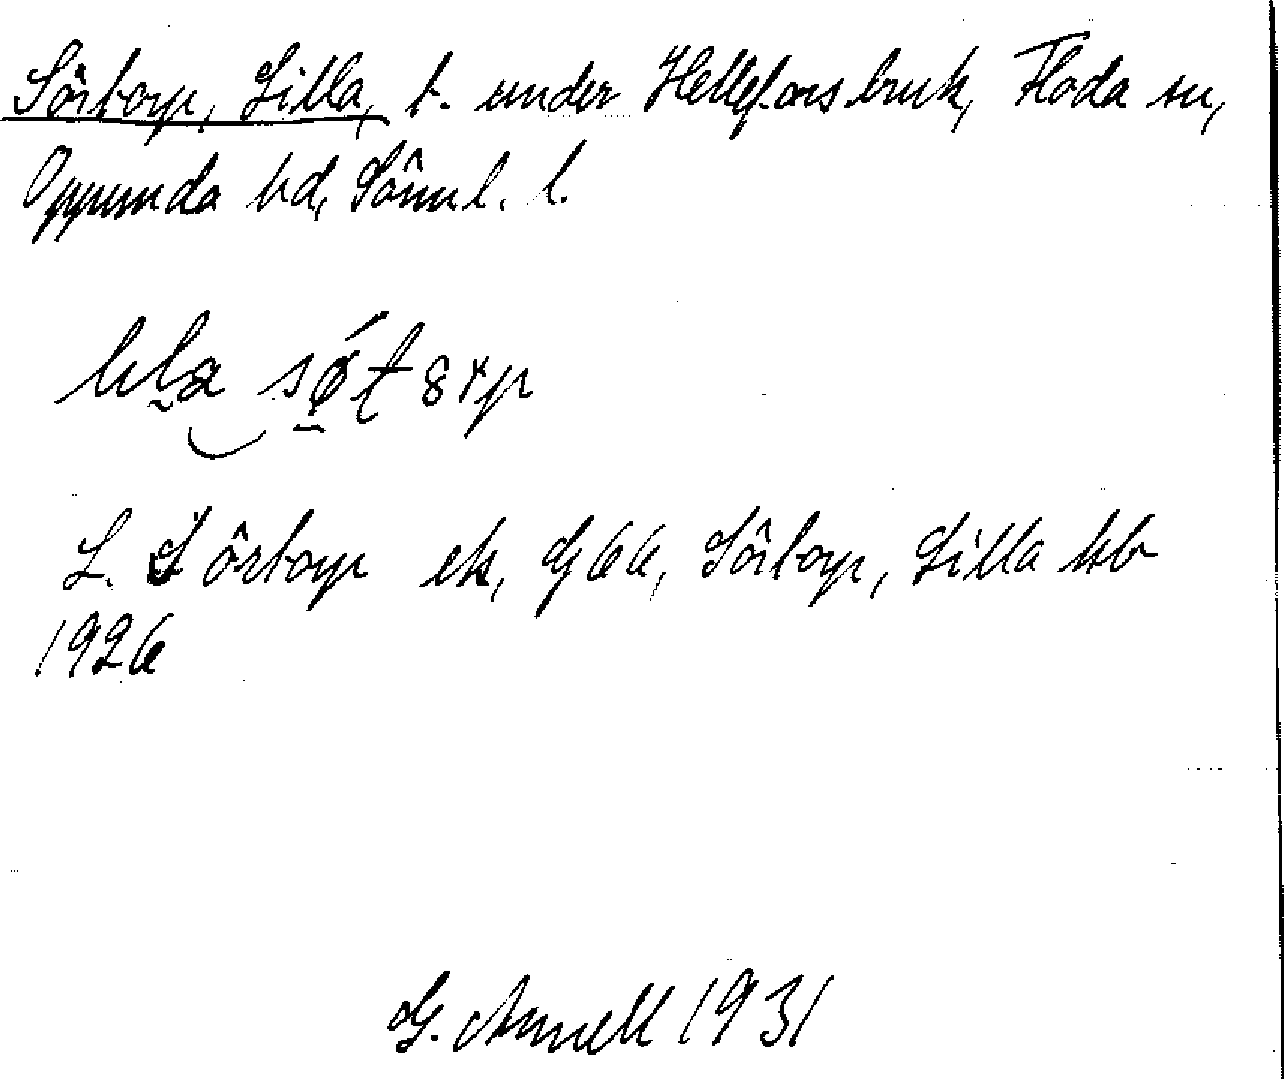 Sörtorp, Lilla, t. under Hellefors bruk, Floda sn,
Oppunda hd, Sörml. l.
L. Sörtorp ek, G66, Sörtorp, Lilla kb
1926
G. Annell 1931